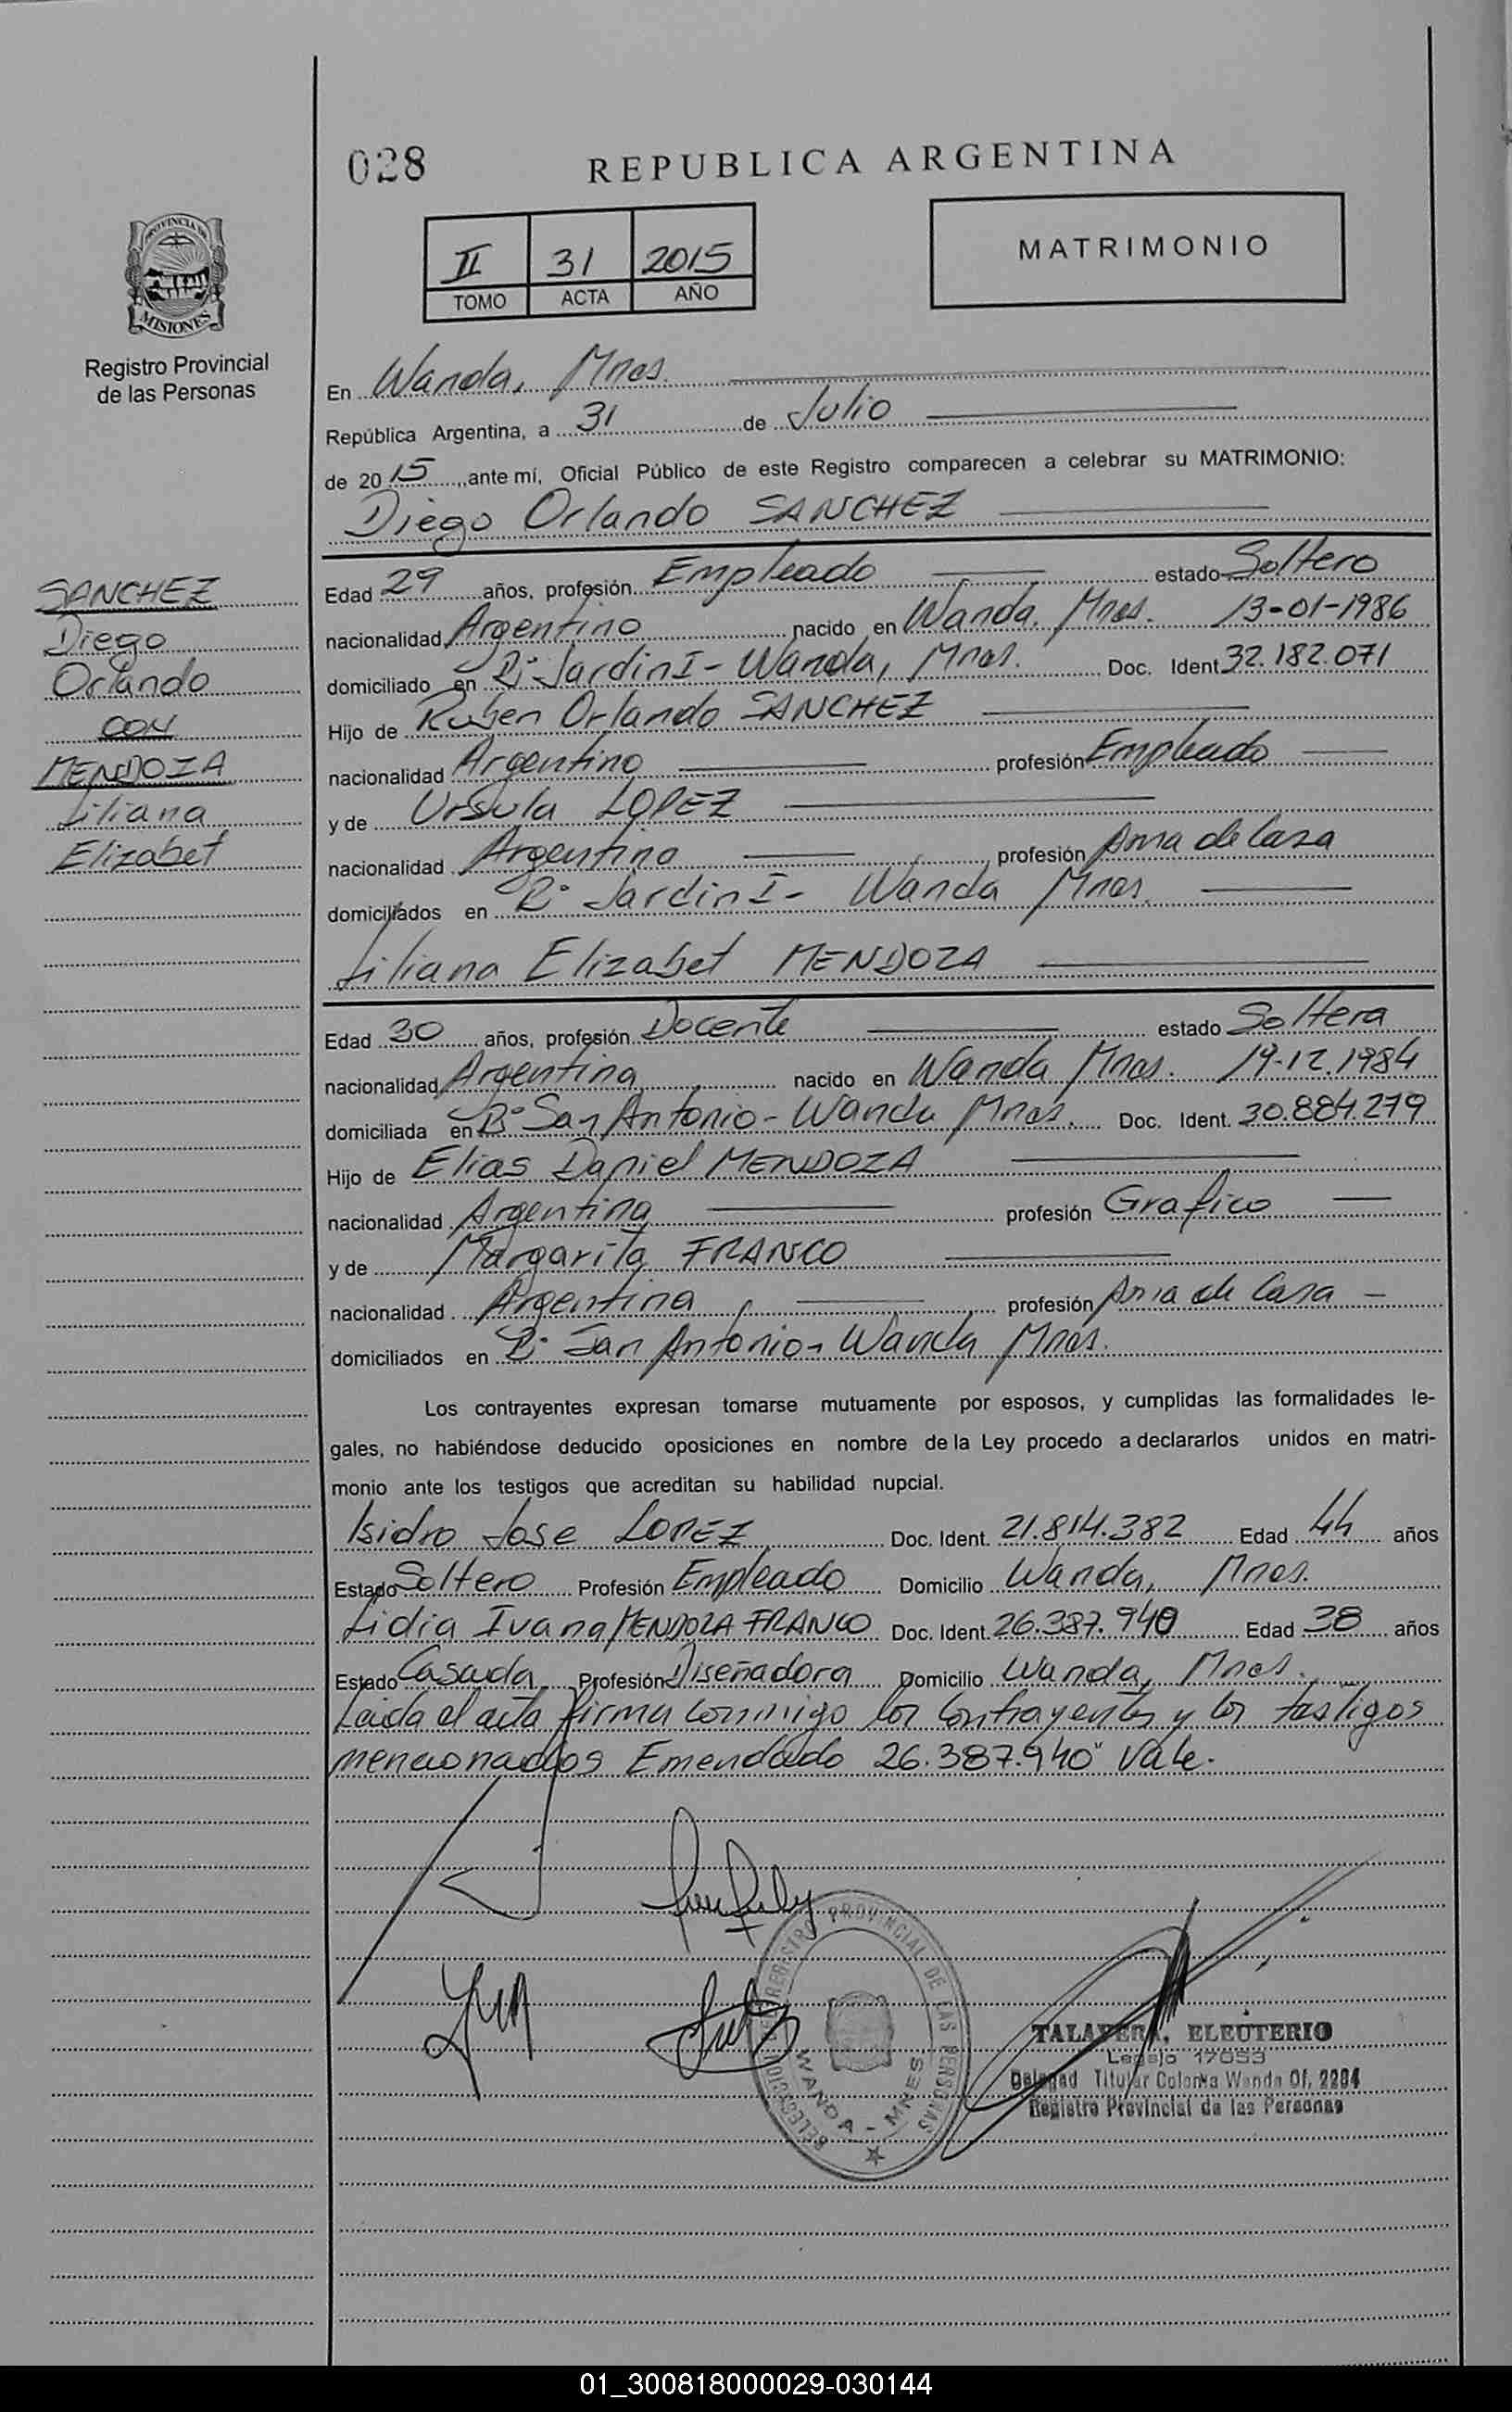 028
REPUBLICA ARGENTINA
II 31 2015
TOMO ACTA AÑO
MATRIMONIO
PROVINCIA DE
MISIONES
Registro Provincial
de las Personas
SANCHEZ
Diego
Orlando
con
MENDOZA
Liliana
Elizabet
En Wanda, Mnes.
República Argentina, a 31 de Julio
de 20 15, ante mí, Oficial Público de este Registro comparecen a celebrar su MATRIMONIO:
Diego Orlando SANCHEZ
Edad 29 años, profesión Empleado estado Soltero
nacionalidad Argentino nacido en Wanda, Mnes. 13-01-1986
domiciliado en B° Jardin I - Wanda, Mnes. Doc. Ident 32.182.071
Hijo de Ruben Orlando SANCHEZ
nacionalidad Argentino profesión Empleado
y de Ursula LOPEZ
nacionalidad Argentino profesión Ama de Casa
domiciliados en B° Jardin I - Wanda Mnes.
Liliana Elizabet MENDOZA
Edad 30 años, profesión Docente estado Soltera
nacionalidad Argentina nacido en Wanda Mnes. 19-12.1984
domiciliada en B° San Antonio - Wanda Mnes. Doc. Ident. 30.884.279
Hijo de Elias Daniel MENDOZA
nacionalidad Argentina profesión Grafico
y de Margarita FRANCO
nacionalidad Argentina profesión Ama de Casa
domiciliados en B° San Antonio - Wanda Mnes.
Los contrayentes expresan tomarse mutuamente por esposos, y cumplidas las formalidades le-
gales, no habiéndose deducido oposiciones en nombre de la Ley procedo a declararlos unidos en matri-
monio ante los testigos que acreditan su habilidad nupcial.
Isidro Jose LOPEZ Doc. Ident. 21.814.382 Edad 44 años
Estado Soltero Profesión Empleado Domicilio Wanda, Mnes.
Lidia Ivana MENDOZA FRANCO Doc. Ident. 26.387.940 Edad 38 años
Estado Casada Profesión Diseñadora Domicilio Wanda, Mnes.
Leida el acta firma conmigo los contrayentes y los testigos
mencionados Emendado 26.387.940" Vale.
REGISTRO PROVINCIAL DE LAS PERSONAS
WANDA - MNES
TALAVERA, ELEUTERIO
Legajo 17053
Delegad Titular Colonia Wanda Of. 2204
Registro Provincial de las Personas
01_300818000029-030144